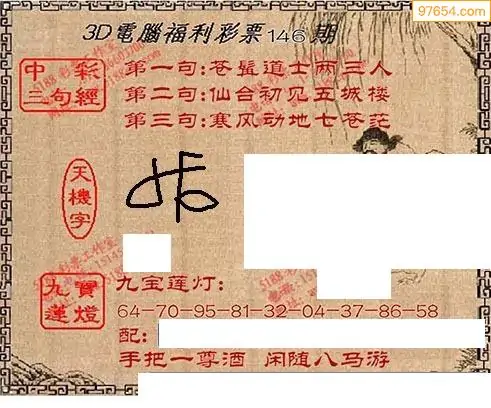 97654.com
3D電腦福利彩票146期
中彩
三句經
第一句:苍髯道士两三人
第二句:仙台初见五城楼
第三句:寒风动地七苍茫
天機字
九寶
蓮燈
九宝莲灯:
64-70-95-81-32-04-37-86-58
配:
手把一尊酒 闲随八马游